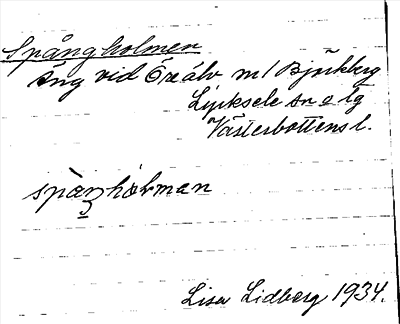 Spångholmen
Äng vid Öreälv m/ Bjürkberg
Lycksele sn o lg
Västerbottens l.
spàŋhòlman
Lisa Lidberg 1934.